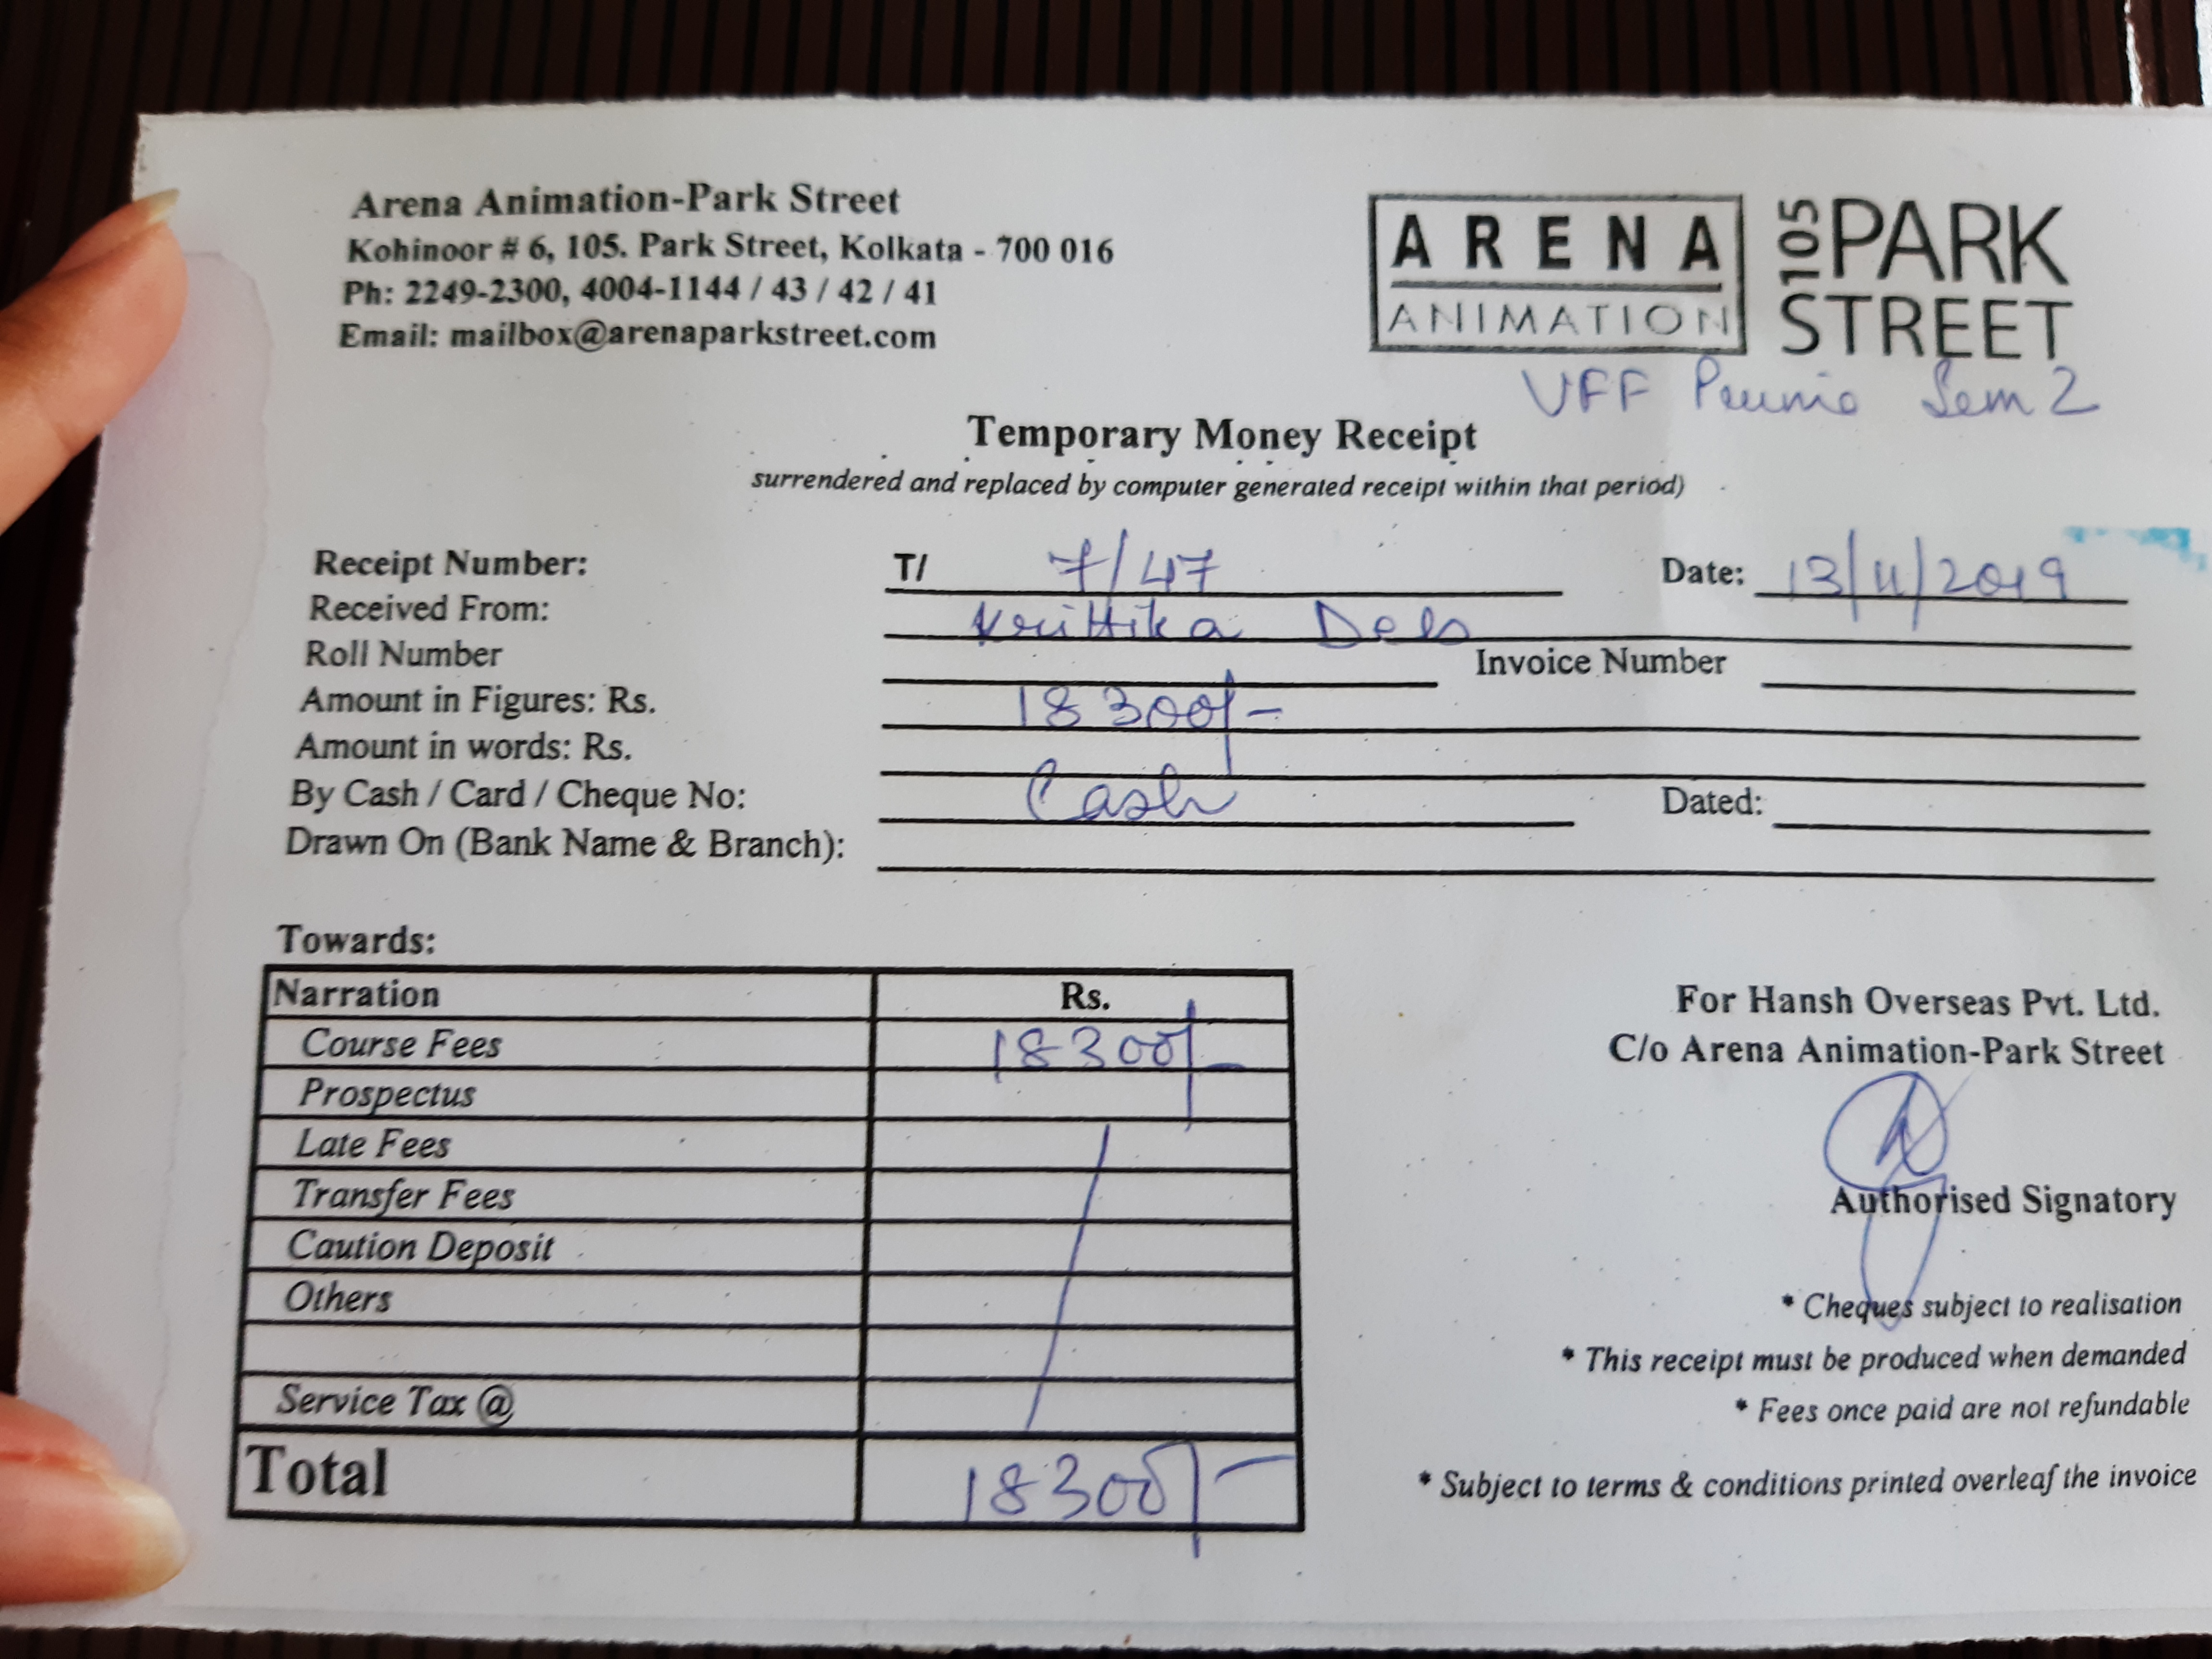 Arena Animation-Park Street
Kohinoor # 6, 105. Park Street, Kolkata - 700 016
Ph: 2249-2300, 4004-1144 / 43 / 42 / 41
Email: mailbox@arenaparkstreet.com
ARENA
ANIMATION
105 PARK
STREET
Sem 2
Temporary Money Receipt
surrendered and replaced by computer generated receipt within that period)
Receipt Number: T/ 7/47 Date: 13/11/2019
Received From:
Roll Number Invoice Number
Amount in Figures: Rs. 18300/-
Amount in words: Rs.
By Cash / Card / Cheque No: Cash Dated:
Drawn On (Bank Name & Branch):
Towards:
Narration Rs.
Course Fees 18300/-
Prospectus
Late Fees
Transfer Fees
Caution Deposit
Others
Service Tax @
Total 18300/-
For Hansh Overseas Pvt. Ltd.
C/o Arena Animation-Park Street
Authorised Signatory
* Cheques subject to realisation
* This receipt must be produced when demanded
* Fees once paid are not refundable
* Subject to terms & conditions printed overleaf the invoice